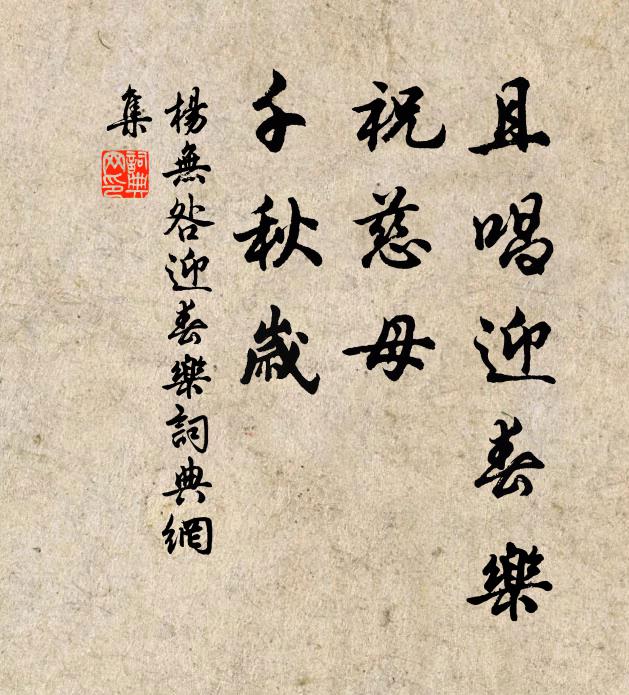 且唱迎春樂
祝慈母
千秋歲
楊無咎迎春樂詞典網
集
詞典
网印